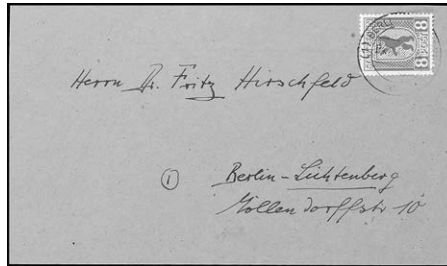 (1) BERLI
8
8
Herrn Dr. Fritz Hirschfeld
① Berlin-Lichtenberg
Möllendorffstr 10